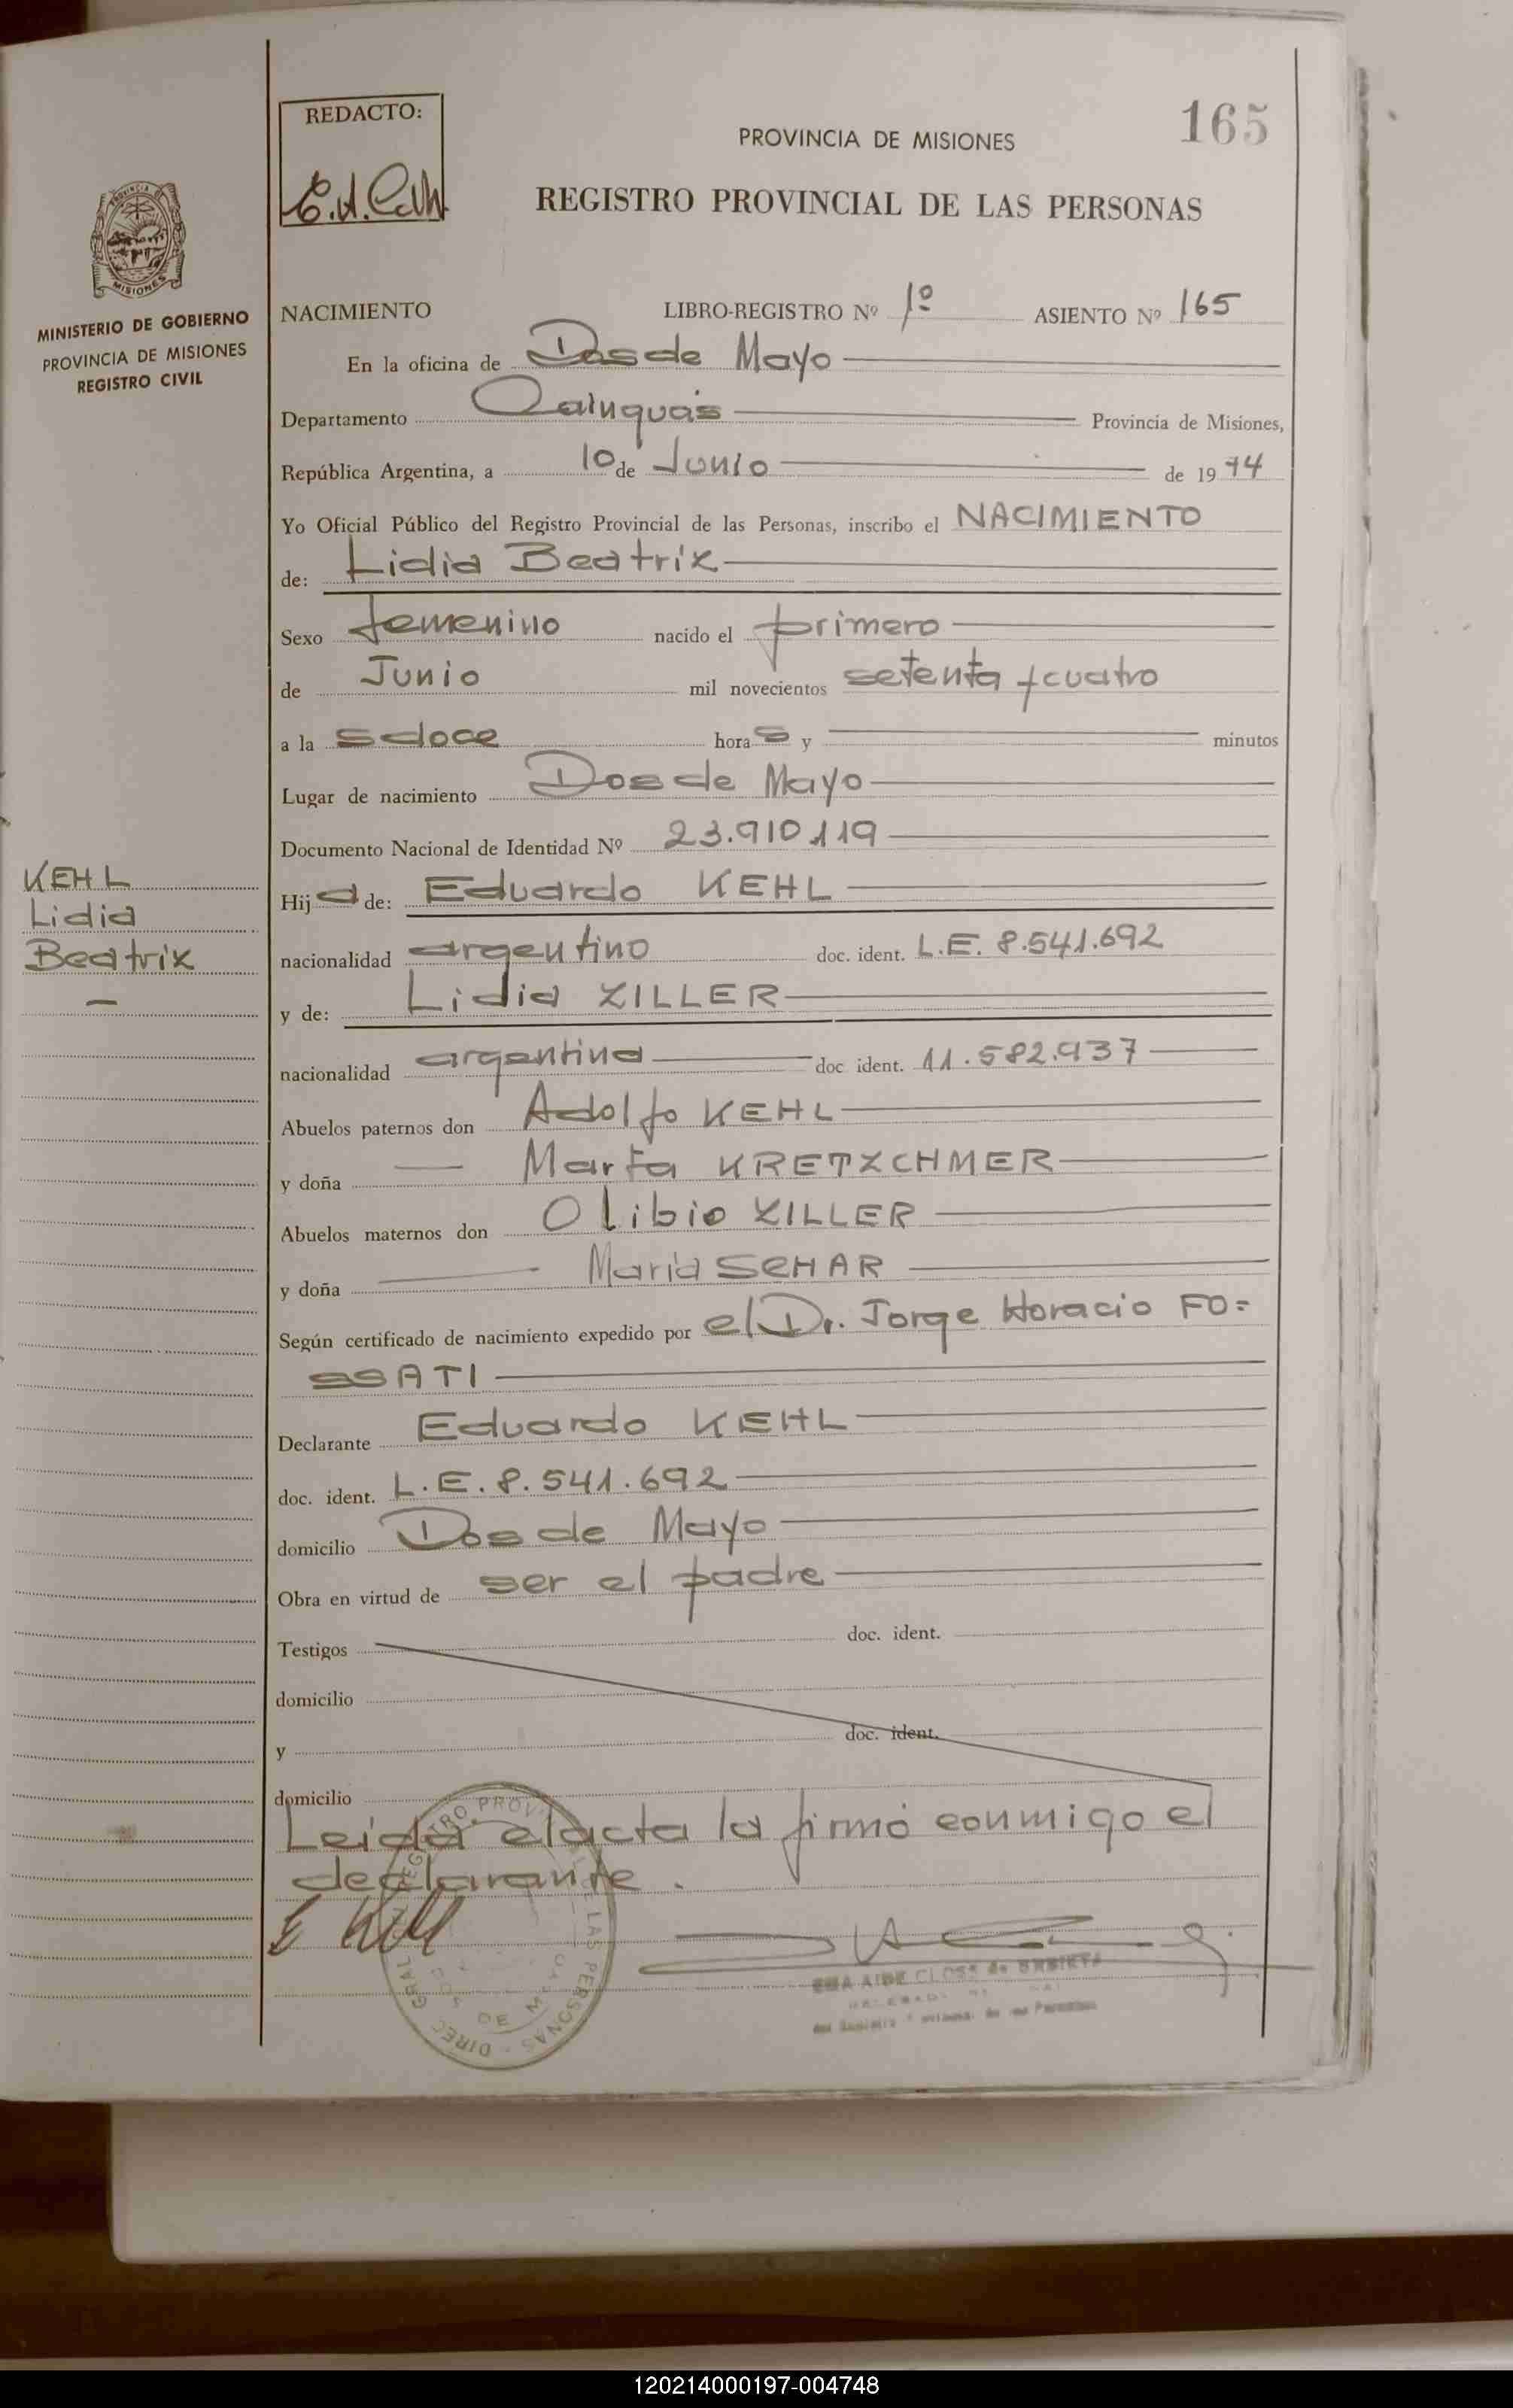 REDACTO:
165
PROVINCIA DE MISIONES
REGISTRO PROVINCIAL DE LAS PERSONAS
MISIONES
MINISTERIO DE GOBIERNO
PROVINCIA DE MISIONES
REGISTRO CIVIL
NACIMIENTO LIBRO-REGISTRO Nº 1º ASIENTO Nº 165
En la oficina de Dos de Mayo
Departamento Cainguás Provincia de Misiones,
República Argentina, a 10 de Junio de 1974
Yo Oficial Público del Registro Provincial de las Personas, inscribo el NACIMIENTO
de: Lidia Beatriz
Sexo femenino nacido el primero
de Junio mil novecientos setenta y cuatro
a la s doce hora s y minutos
Lugar de nacimiento Dos de Mayo
Documento Nacional de Identidad Nº 23.910.119
KEHL
Lidia
Beatriz
Hij a de: Eduardo KEHL
nacionalidad argentino doc. ident. L.E. 8.541.692
y de: Lidia ZILLER
nacionalidad argentina doc ident. 11.582.937
Abuelos paternos don Adolfo KEHL
y doña Marta KRETZCHMER
Abuelos maternos don Olibio ZILLER
y doña María SCHAR
Según certificado de nacimiento expedido por el Dr. Jorge Horacio FO=
SSATI
Declarante Eduardo KEHL
doc. ident. L.E. 8.541.692
domicilio Dos de Mayo
Obra en virtud de ser el padre
Testigos doc. ident.
domicilio
y doc. ident.
domicilio
Leida el acta la firmó conmigo el
declarante.
120214000197-004748